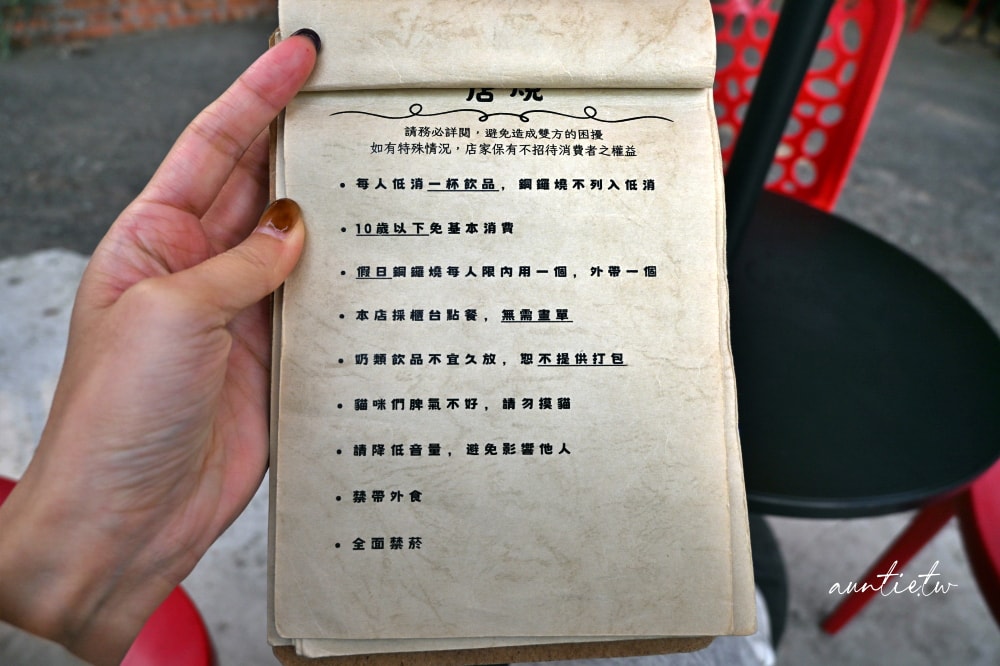 店規
請務必詳閱，避免造成雙方的困擾
如有特殊情況，店家保有不招待消費者之權益
• 每人低消一杯飲品，鋼鑼燒不列入低消
• 10歲以下免基本消費
• 假日鋼鑼燒每人限內用一個，外帶一個
• 本店採櫃台點餐，無需畫單
• 奶類飲品不宜久放，恕不提供打包
• 貓咪們脾氣不好，請勿摸貓
• 請降低音量，避免影響他人
• 禁帶外食
• 全面禁菸
auntie.tw